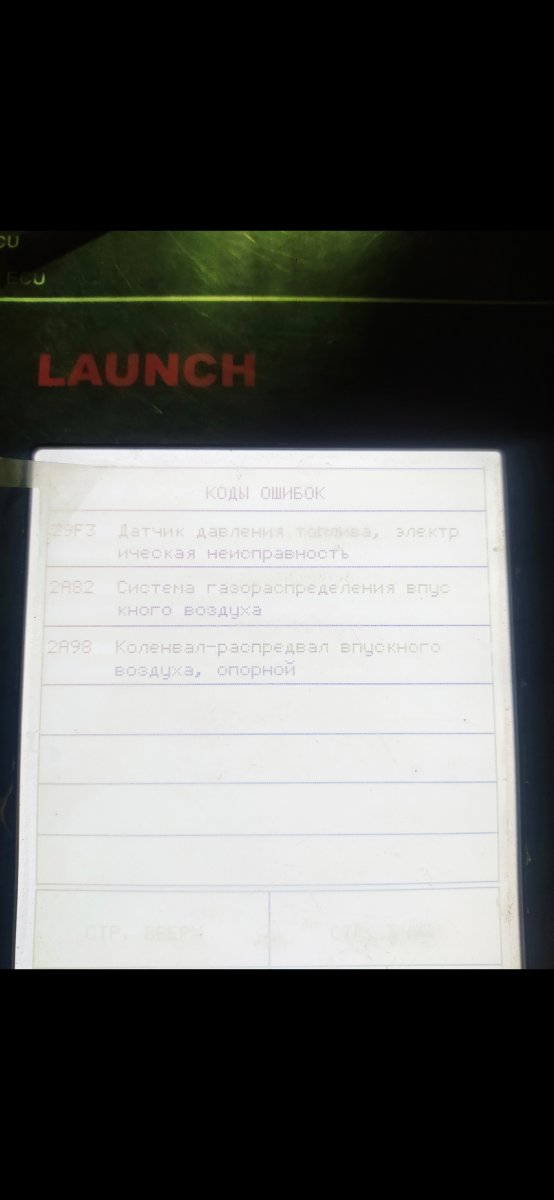 CU
ECU
LAUNCH
КОДЫ ОШИБОК
29F3 Датчик давления топлива, электр
ическая неисправность
2A82 Система газораспределения впус
кного воздуха
2A98 Коленвал-распредвал впускного
воздуха, опорной
СТР. ВВЕРХ
СТР.